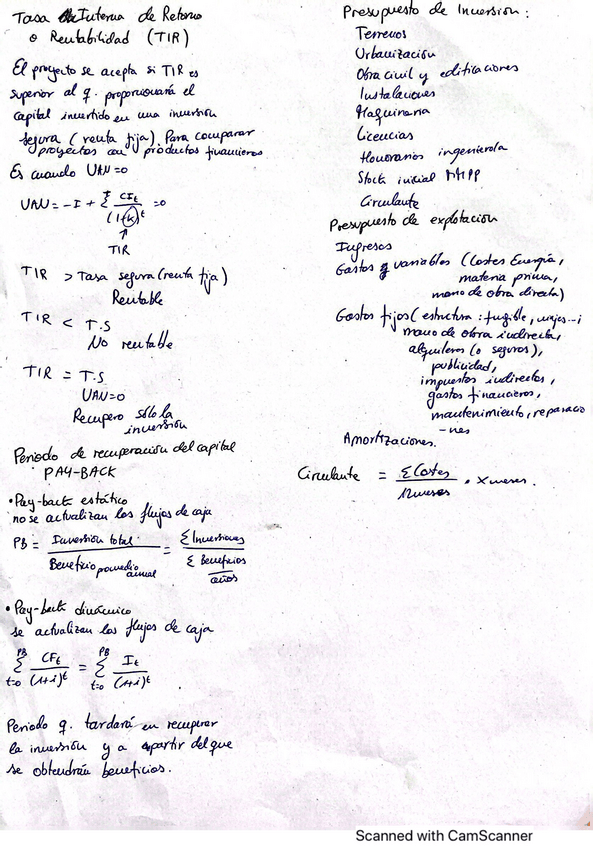 Tasa Interna de Retorno
o Rentabilidad (TIR)
El proyecto se acepta si TIR es
superior al q. proporcionará el
capital invertido en una inversión
segura (renta fija). Para comparar
proyectos con productos financieros
Es cuando VAN=0
VAN = -I + Σ CFt / (1+k)^t = 0
↑
TIR
TIR > Tasa segura (renta fija)
Rentable
TIR < T.S
No rentable
TIR = T.S
VAN=0
Recupero sólo la
inversión
Periodo de recuperación del capital
PAY-BACK
• Pay-back estático
no se actualizan los flujos de caja
PB = Inversión total / Beneficio promedio anual = Σ Inversiones / Σ Beneficios / años
• Pay-back dinámico
se actualizan los flujos de caja
PB Σ t=0 CFt / (1+i)^t = PB Σ t=0 It / (1+i)^t
Periodo q. tardará en recuperar
la inversión y a partir del que
se obtendrán beneficios.
Presupuesto de Inversión:
Terrenos
Urbanización
Obra civil y edificaciones
Instalaciones
Maquinaria
Licencias
Honorarios ingeniería
Stock inicial MMPP
Circulante
Presupuesto de explotación
Ingresos
Gastos variables (Costes Energía,
materia prima,
mano de obra directa)
Gastos fijos (estructura: fungible,
mano de obra indirecta,
alquileres (o seguros),
publicidad,
impuestos indirectos,
gastos financieros,
mantenimiento, reparacio
-nes
Amortizaciones.
Circulante = Σ Costes / 12 meses • x meses.
Scanned with CamScanner